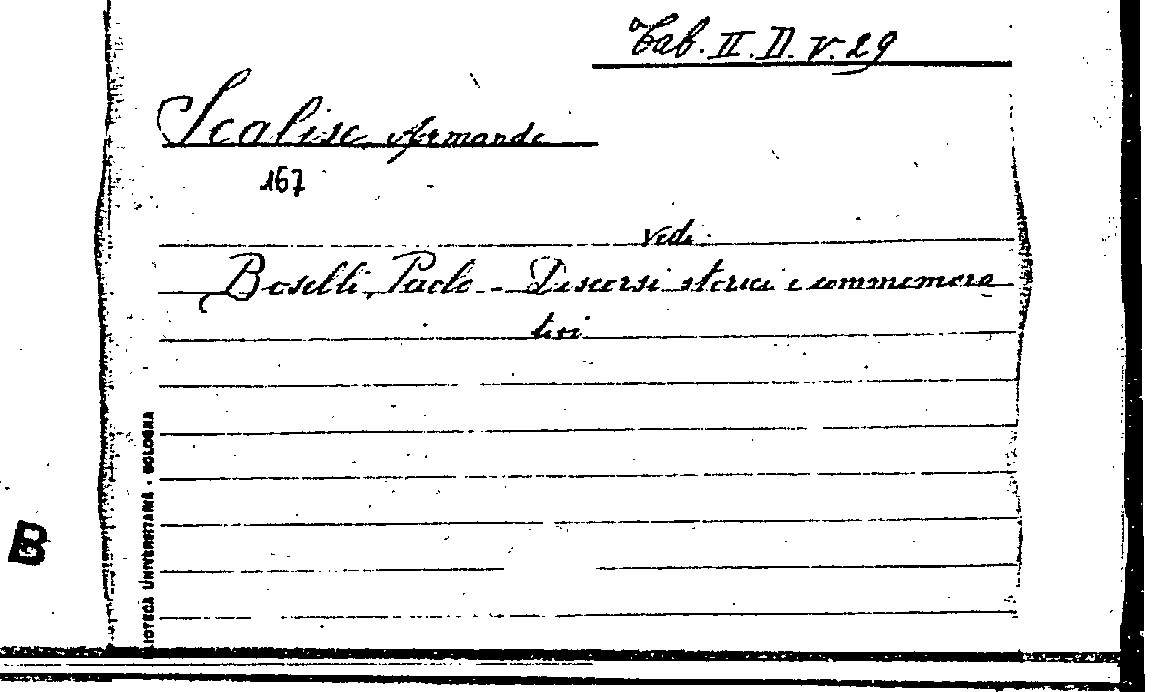 Tab. II. D. V. 29
Scalise Armando
167
vedi:
Boselli, Paolo - Discorsi storici e commemora
tivi
BIBLIOTECA UNIVERSITARIA - BOLOGNA
B